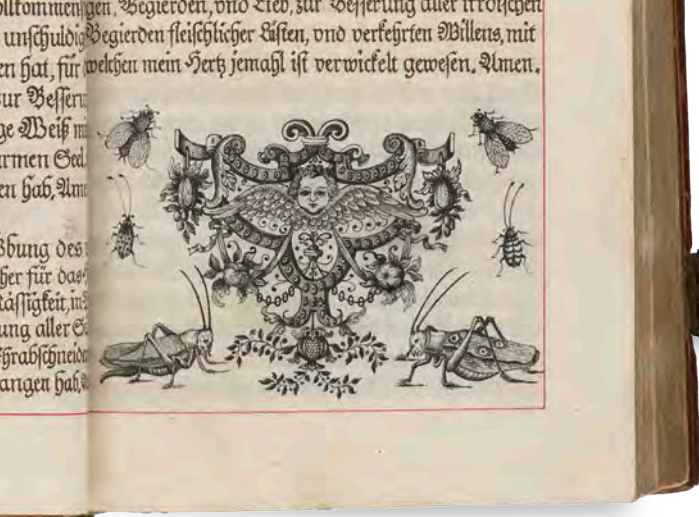 ollkommen
unschuldig
en hat, für
ur Besseru
ge Weiß mi
armen Seel
en hab, Ame
bung des
her für das
lässigkeit, in
ung aller S
hrabschneide
angen hab,
gen, Begierden, vnd Lieb, zur Besserung aller irrdischen
Begierden fleischlicher Lüsten, vnd verkehrten Willens, mit
welchen mein Hertz jemahl ist verwickelt gewesen. Amen.